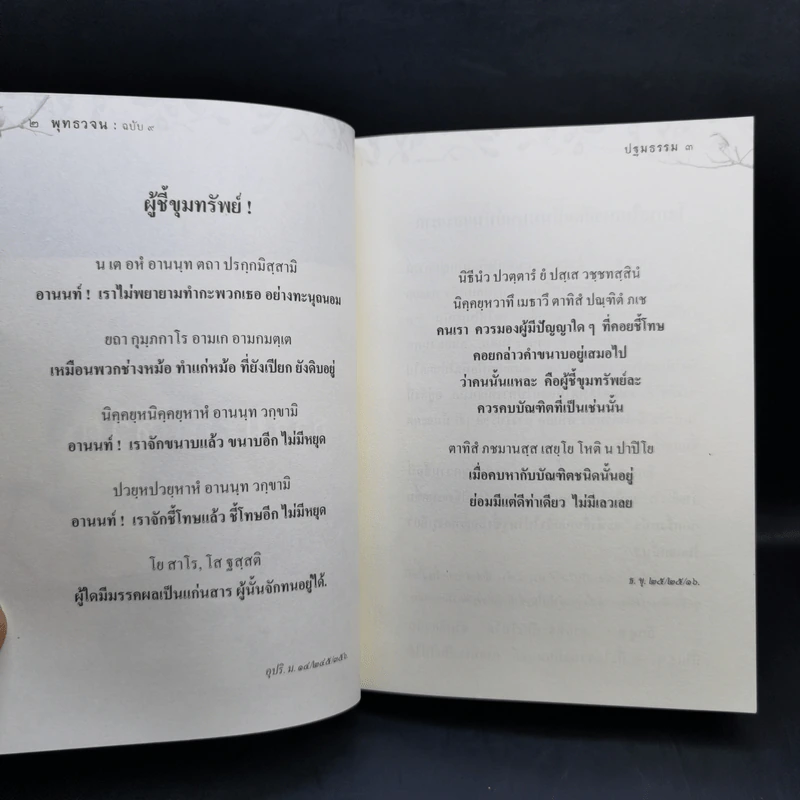 ๒ พุทธวจน : ฉบับ ๙
ผู้ชี้ขุมทรัพย์ !
น เต อหํ อานนฺท ตถา ปรกฺกมิสฺสามิ
อานนท์ ! เราไม่พยายามทำกะพวกเธอ อย่างทะนุถนอม
ยถา กุมฺภกาโร อามเก อามกมตฺเต
เหมือนพวกช่างหม้อ ทำแก่หม้อ ที่ยังเปียก ยังดิบอยู่
นิคฺคยฺหนิคฺคยฺหาหํ อานนฺท วกฺขามิ
อานนท์ ! เราจักขนาบแล้ว ขนาบอีก ไม่มีหยุด
ปวยฺหปวยฺหาหํ อานนฺท วกฺขามิ
อานนท์ ! เราจักชี้โทษแล้ว ชี้โทษอีก ไม่มีหยุด
โย สาโร, โส ฐสฺสติ
ผู้ใดมีมรรคผลเป็นแก่นสาร ผู้นั้นจักทนอยู่ได้.
อุปริ. ม. ๑๔/๒๔๕/๓๕๖.
ปฐมธรรม ๓
นิธีนํว ปวตฺตารํ ยํ ปสฺเส วชฺชทสฺสินํ
นิคฺคยฺหวาทึ เมธาวึ ตาทิสํ ปณฺฑิตํ ภเช
คนเรา ควรมองผู้มีปัญญาใด ๆ ที่คอยชี้โทษ
คอยกล่าวคำขนาบอยู่เสมอไป
ว่าคนนั้นแหละ คือผู้ชี้ขุมทรัพย์ละ
ควรคบบัณฑิตที่เป็นเช่นนั้น
ตาทิสํ ภชมานสฺส เสยฺโย โหติ น ปาปิโย
เมื่อคบหากับบัณฑิตชนิดนั้นอยู่
ย่อมมีแต่ดีท่าเดียว ไม่มีเลวเลย
ธ. ขุ. ๒๕/๒๕/๑๖.